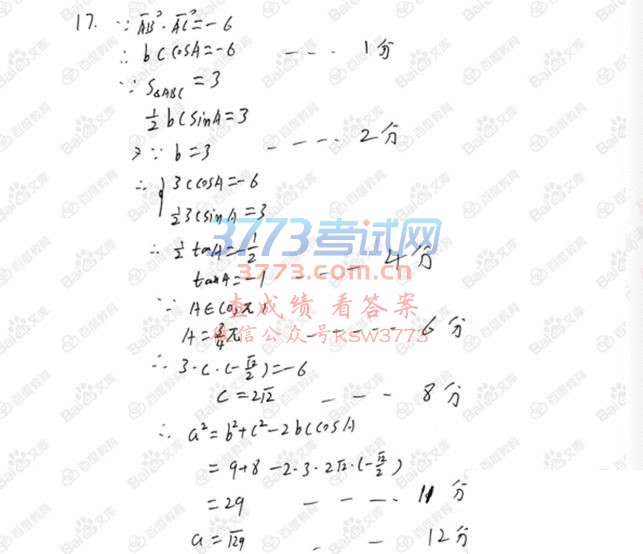 17. ∵ AB→·AC→=-6
∴ bccosA=-6 --- 1分
∵ S△ABC=3
1/2 bcsinA=3
又∵ b=3 ---- 2分
∴ { 3ccosA=-6
1/2 3csinA=3
∴ 1/2 tanA=-1/2
tanA=-1 ---- 4分
∵ A∈(0,π)
A=3/4π ----- 6分
∴ 3·c·(-√2/2)=-6
c=2√2 --- 8分
∴ a²=b²+c²-2bccosA
=9+8-2·3·2√2·(-√2/2)
=29 ---- 11分
a=√29 -- 12分
3773考试网
www.3773.com.cn
查成绩 看答案
微信公众号KSW3773
Bai百度文库
百度教育